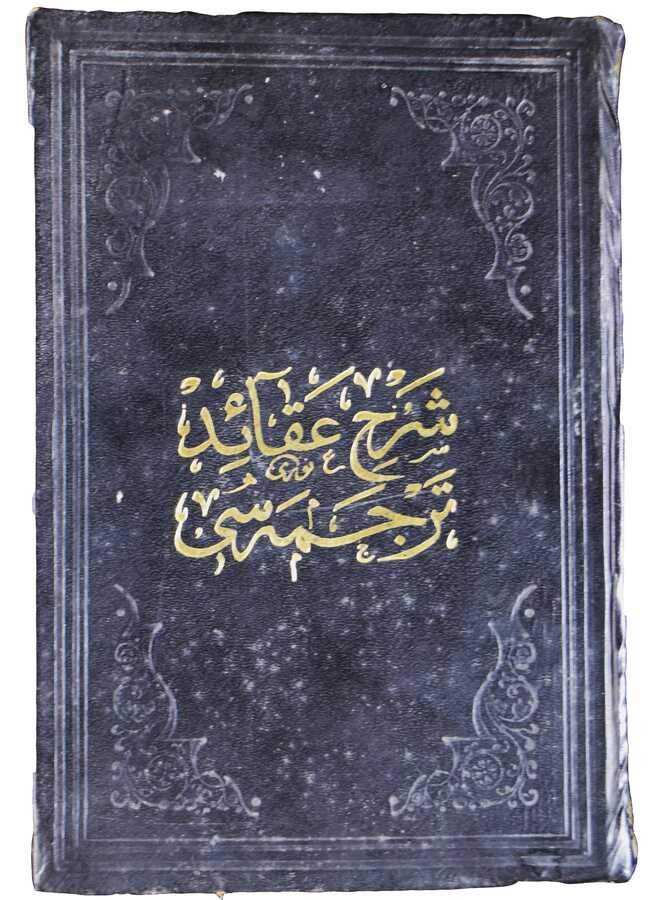 شَرْحِ عَقَآئِدْ
تَرْجَمَه سُى